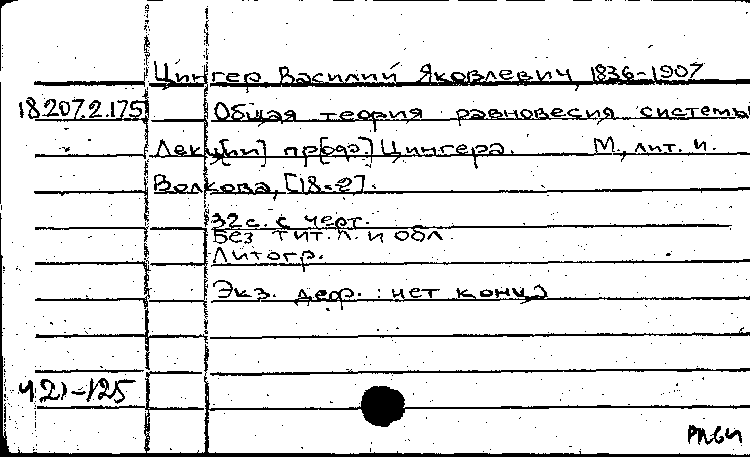 Цингер, Василий Яковлевич, 1836-1907
18.207.2.175 Общая теория равновесия системы
Лекц[ии] пр[оф.] Цингера. М., лит. и.
Волкова, [18-?].
32 с. с черт.
Без тит. л. и обл.
Литогр.
Экз. деф.: нет конца
421-125